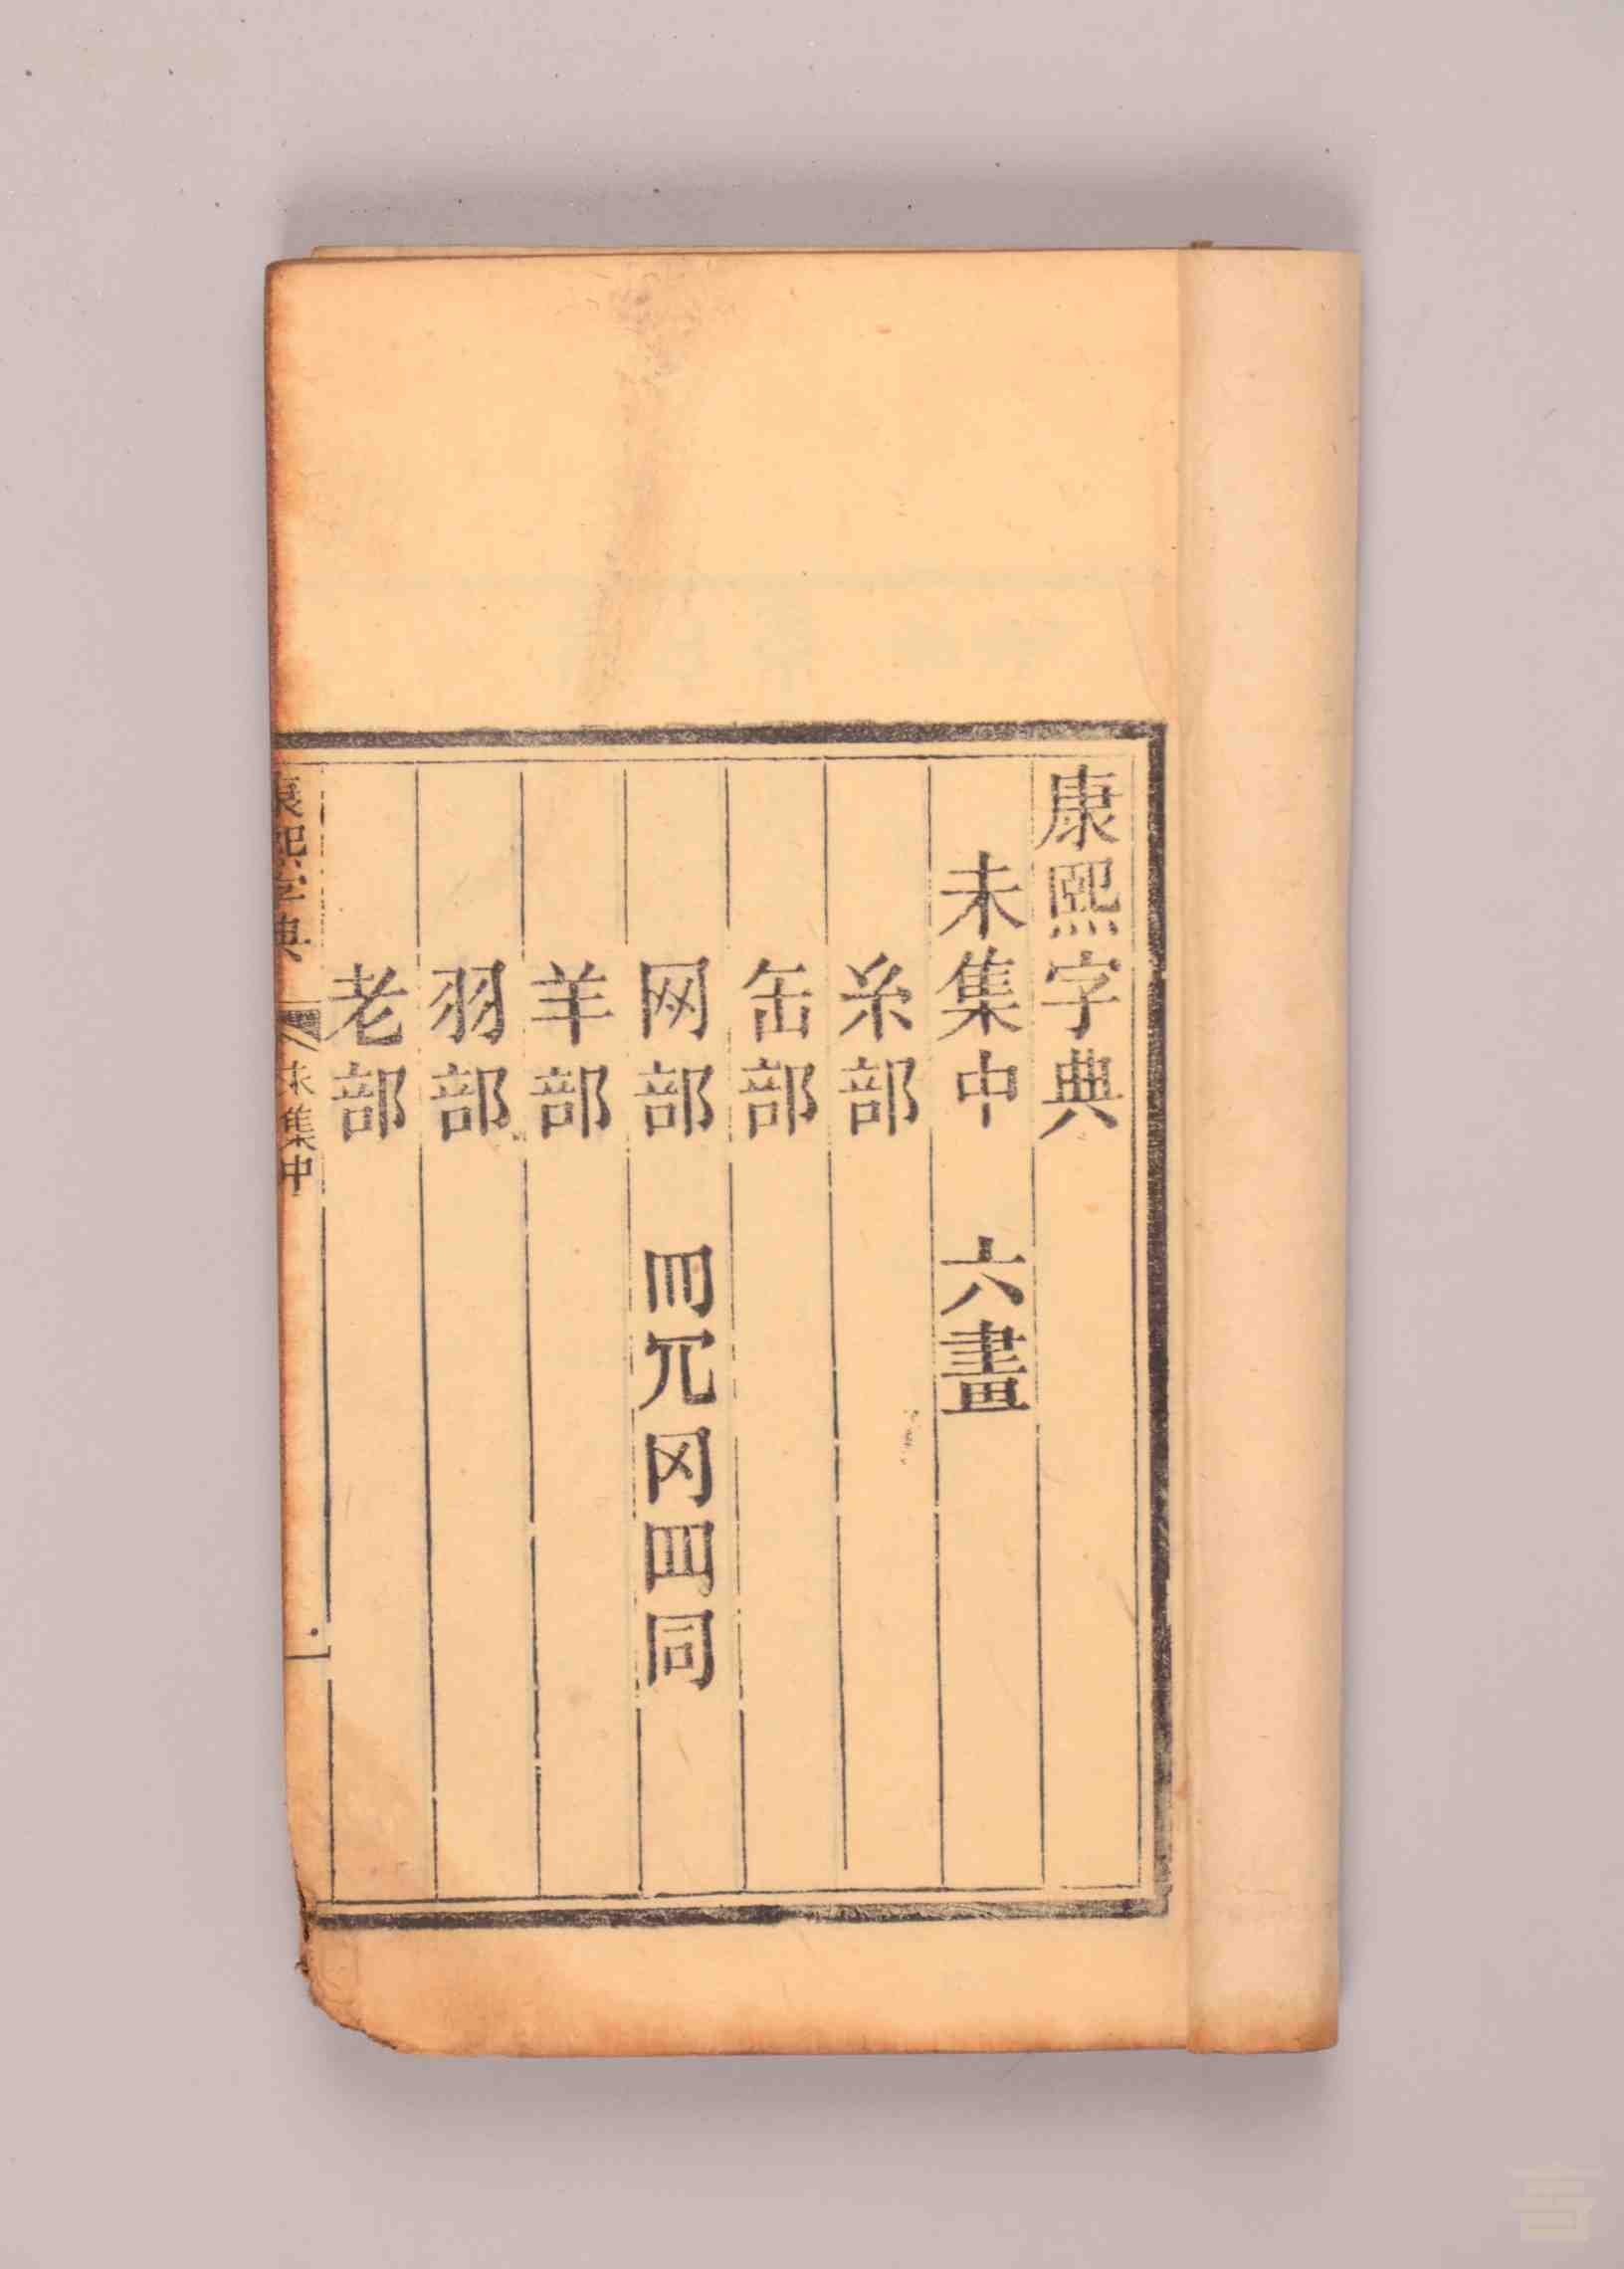 康熙字典
未集中　六畫
糸部
缶部
网部　𦉪𠔿冈罒同
羊部
羽部
老部
康熙字典　未集中　一